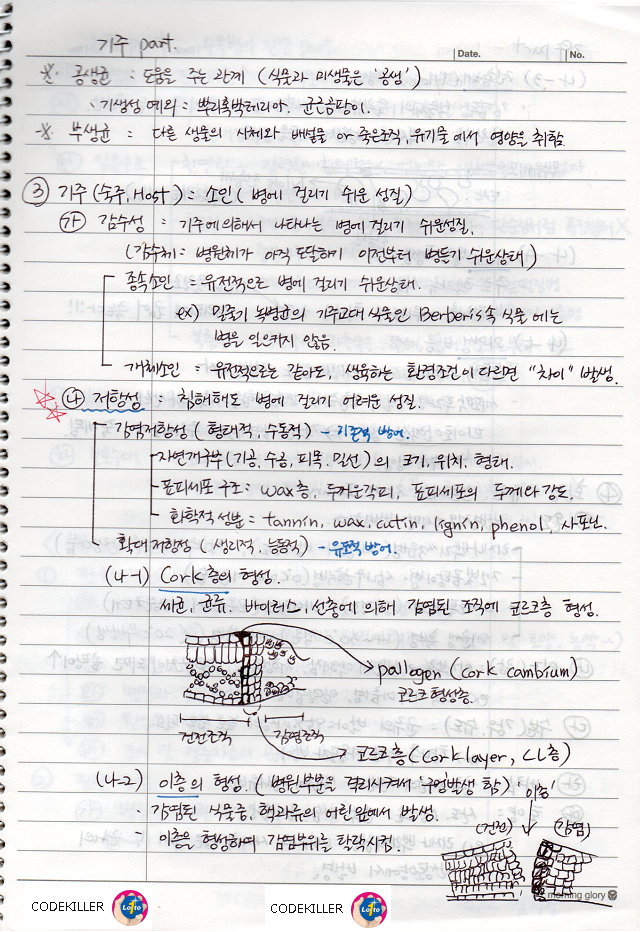 기주 part.
Date. No.
※. 공생균 : 도움을 주는 관계 (식물과 미생물은 '공생')
· 기생성 예외 : 뿌리혹박테리아. 균근곰팡이.
※. 부생균 = 다른 생물의 사체와 배설물 or 죽은조직, 유기물에서 영양을 취함
③ 기주 (숙주, Host) = 소인 (병에 걸리기 쉬운 성질)
㉮ 감수성 = 기주에 의해서 나타나는 병에 걸리기 쉬운성질.
(감수체 = 병원체가 아직 도달하기 이전부터 병들기 쉬운상태)
종속소인 = 유전적으로 병에 걸리기 쉬운상태.
ex) 밀줄기 녹병균의 기주교대 식물인 Berberis속 식물에는
병을 일으키지 않음.
개체소인 = 유전적으로는 같아도, 생육하는 환경조건이 다르면 "차이" 발생.
㉯ 저항성 = 침해해도 병에 걸리기 어려운 성질.
감염저항성 (형태적, 수동적) - 기존적 방어.
- 자연개구부 (기공, 수공, 피목, 밀선)의 크기, 위치, 형태.
- 표피세포 구조 = wax층, 두꺼운각피, 표피세포의 두께와 강도.
- 화학적 성분 = tannin, wax, cutin, lignin, phenol, 사포닌.
확대저항성 (생리적, 능동적) - 유도적 방어.
(나-1) Cork층의 형성.
세균, 균류, 바이러스, 선충에 의해 감염된 조직에 코르크층 형성.
pallogen (cork cambium)
코르크 형성층.
건전조직 감염조직
코르크층 (cork layer, CL층)
(나-2) 이층의 형성. (병원부분을 격리시켜서 '구멍발생 함)
이층
· 감염된 식물중, 핵과류의 어린잎에서 발생.
- 이층을 형성하여 감염부위를 탈락시킴.
(건전) (감염)
morning glory
CODEKILLER Lotto
CODEKILLER Lotto